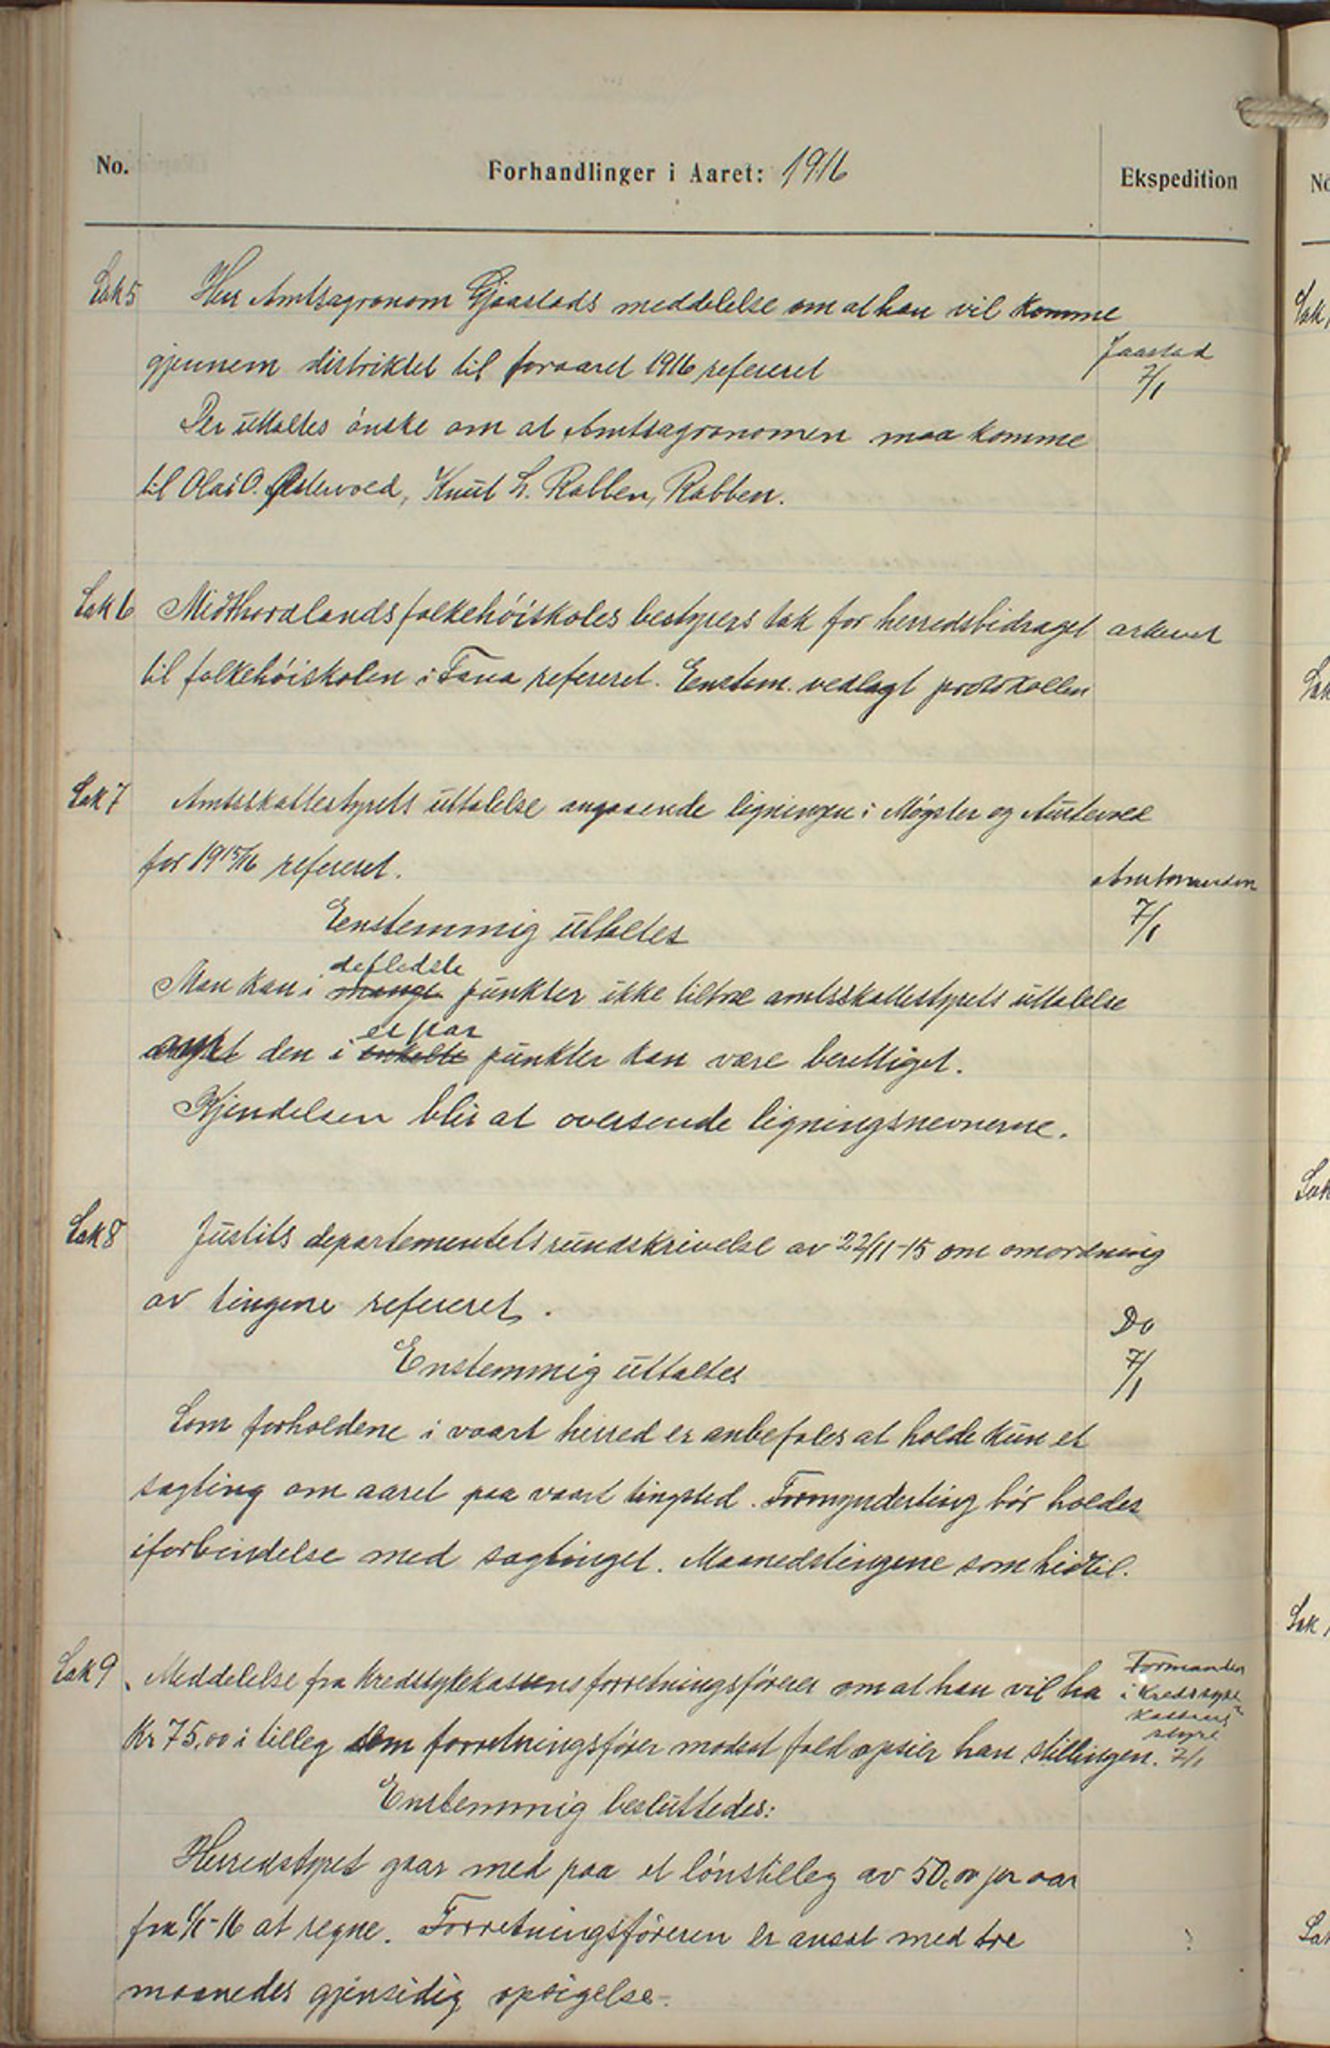 No. Forhandlinger i Aaret: 1916 Ekspedition
Sak 5 Herr Amtsagronom Gjaastads meddelelse om at han vil komme
gjennem distriktet til foraaret 1916 refereret
Jaastad
7/1
Der uttaltes ønske om at Amtsagronomen maa komme
til Olai O. Østervold, Knut L. Rabben, Rabben.
Sak 6 Midthordlands folkehöiskoles bestyrers tak for herredsbidraget arkivet
til folkehöiskolen i Fana refereret. Enstem. vedlagt protokollen
Sak 7 Amtsskattestyrets uttalelse angaaende ligningen i Møgster og Austevold
for 1915/16 refereret.
Amtmanden
7/1
Enstemmig uttaltes
defledste
Man kan i mange punkter ikke tiltræ amtsskattestyrets uttalelse
et par
den i enkelte punkter kan være berettiget.
Kjendelsen blir at oversende ligningsnevnerne.
Sak 8 Justits departementets rundskrivelse av 22/11-15 om omordning
av tingene refereret.
Do
7/1
Enstemmig uttaltes
Som forholdene i vaart herred er anbefales at holde kun et
sagting om aaret paa vaart tingsted. Formynderting bør holdes
iforbindelse med sagtinget. Maanedstingene som hidtil.
Sak 9 Meddelelse fra kredssykekassens forretningsförer om at han vil ha
Formanden
i kredssyke
kassens
styre
7/1
Kr 75,00 i tilleg som forretningsfører modsat fald opsier han stillingen.
Enstemmig besluttedes:
Herredstyret gaar med paa et lönstilleg av 50,00 pr aar
fra 1/1-16 at regne. Forretningsföreren er ansat med tre
maaneders gjensidig opsigelse.